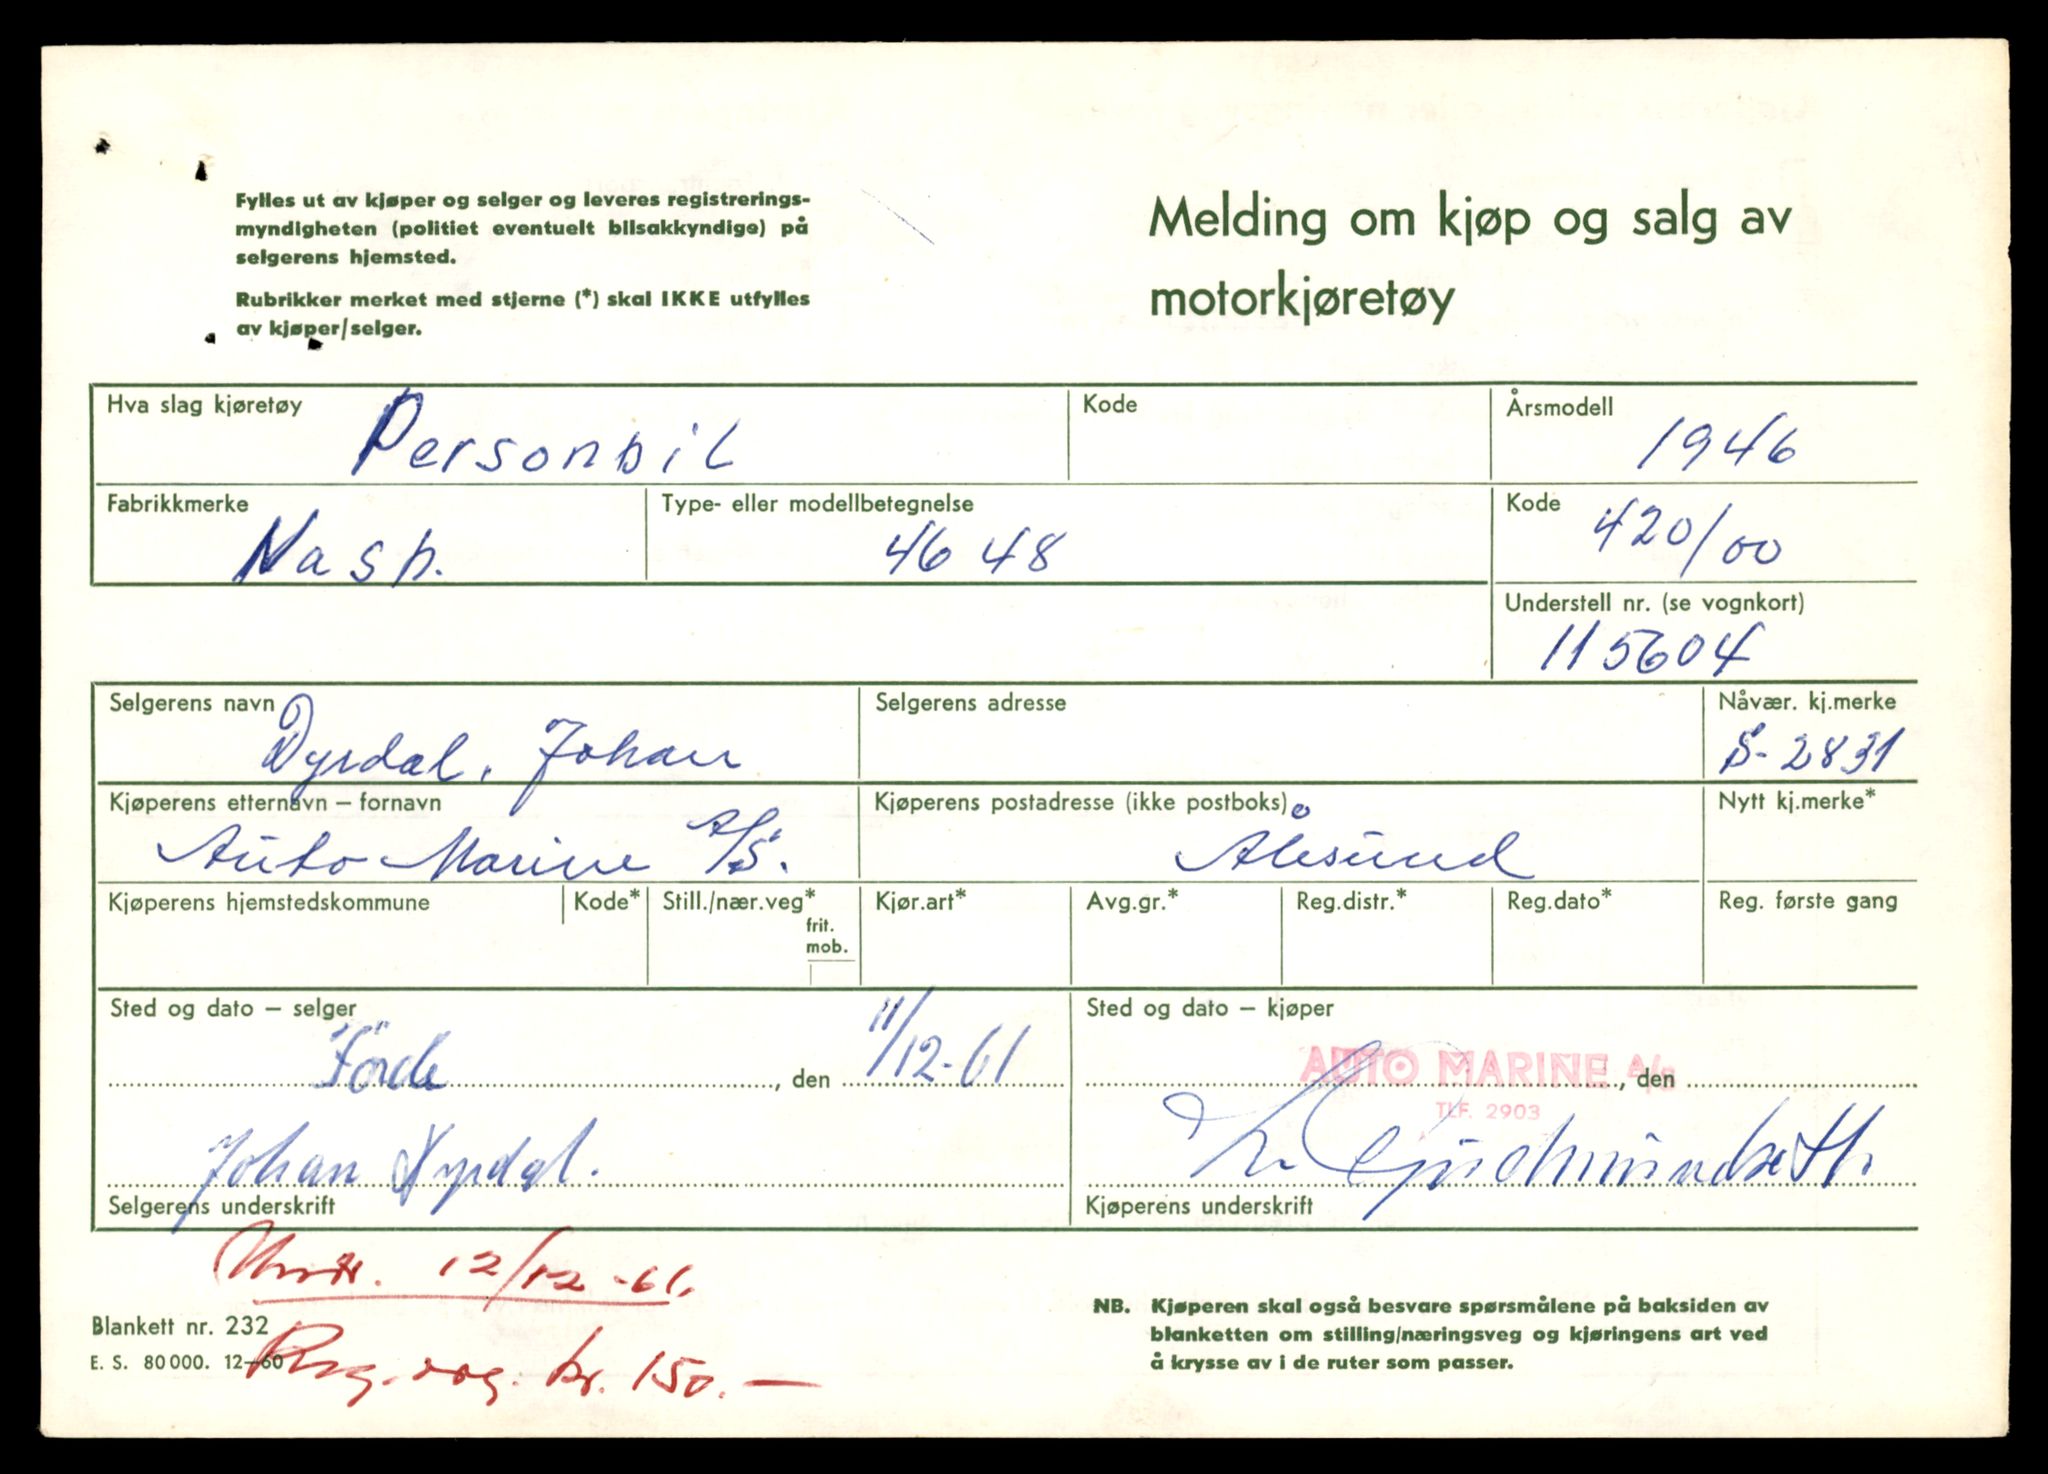 Fylles ut av kjøper og selger og leveres registrerings-
myndigheten (politiet eventuelt bilsakkyndige) på
selgerens hjemsted.
Rubrikker merket med stjerne (*) skal IKKE utfylles
av kjøper/selger.
Melding om kjøp og salg av
motorkjøretøy
Hva slag kjøretøy Personbil Kode Årsmodell 1946
Fabrikkmerke Nash. Type- eller modellbetegnelse 4648 Kode 420/00
Understell nr. (se vognkort)
115604
Selgerens navn Dyrdal, Johan Selgerens adresse Nåvær. kj.merke S-2831
Kjøperens etternavn – fornavn Auto Marine A/S. Kjøperens postadresse (ikke postboks) Ålesund Nytt kj.merke*
Kjøperens hjemstedskommune Kode* Still./nær.veg* frit. mob. Kjør.art* Avg.gr.* Reg.distr.* Reg.dato* Reg. første gang
Sted og dato – selger
Förde, den 11/12-61
Johan Dyrdal.
Selgerens underskrift
Sted og dato – kjøper
AUTO MARINE A/S, den
TLF. 2903
Kjøperens underskrift
12/12-61.
Reg. kr. 150.—
Blankett nr. 232
E. S. 80 000. 12–60
NB. Kjøperen skal også besvare spørsmålene på baksiden av
blanketten om stilling/næringsveg og kjøringens art ved
å krysse av i de ruter som passer.